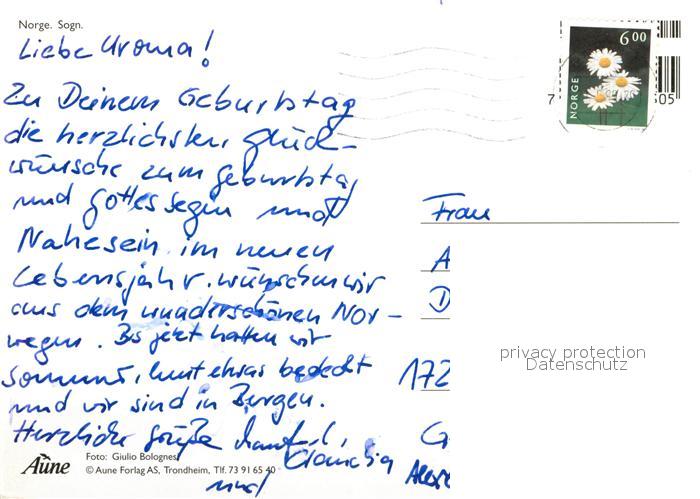 Norge. Sogn.
Liebe Uroma!
Zu Deinem Geburtstag
die herzlichsten Glück-
wünsche zum Geburtstag
und Gottes Segen und
Nahesein im neuen
Lebensjahr wünschen wir
aus dem wunderschönen Nor-
wegen. Bis jetzt hatten wir
Sonne, heut etwas bedeckt
und wir sind in Bergen.
Herzliche Grüße
Claudia
und
Aune
Foto: Giulio Bolognesi
© Aune Forlag AS, Trondheim, Tlf. 73 91 65 40
NORGE
6 00
7
05
Frau
A
D
172
G
privacy protection
Datenschutz